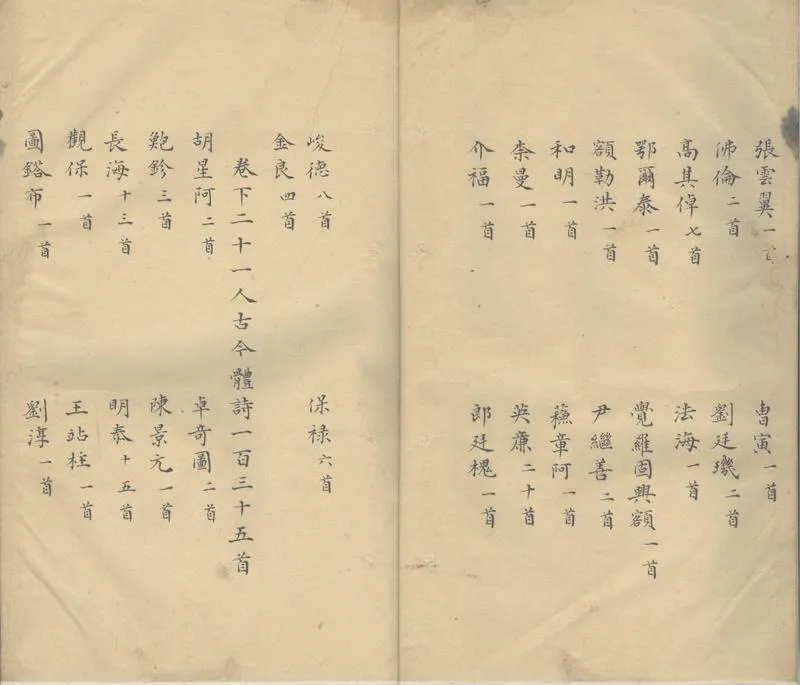 張雲翼一首 曹寅一首
佛倫二首 劉廷璣二首
高其倬七首 法海一首
鄂爾泰一首 覺羅固興額一首
額勒洪一首 尹繼善二首
和明一首 蘓章阿一首
柰曼一首 英廉二十首
介福一首 郎廷槐一首
峻德八首 保祿六首
金良四首
卷下二十一人古今體詩一百三十五首
胡星阿二首 卓奇圖二首
鮑鉁三首 陳景元一首
長海十三首 明泰十五首
觀保一首 王站柱一首
圖鎝布一首 劉淳一首